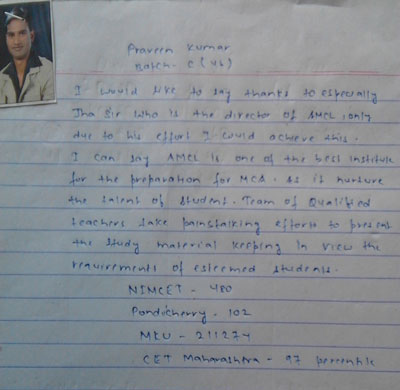 Praveen Kumar
Batch - C (46)
I would like to say thanks to especially
Jha Sir who is the director of AMCL, only
due to his effort I could achieve this.
I can say AMCL is one of the best institute
for the preparation for MCA. As it nurture
the talent of student. Team of Qualified
teachers take painstalking efforts to present
the study material keeping in view the
requirements of esteemed students.
NIMCET - 480
Pondicherry - 102
MKU - 211274
CET Maharashtra - 97 percentile